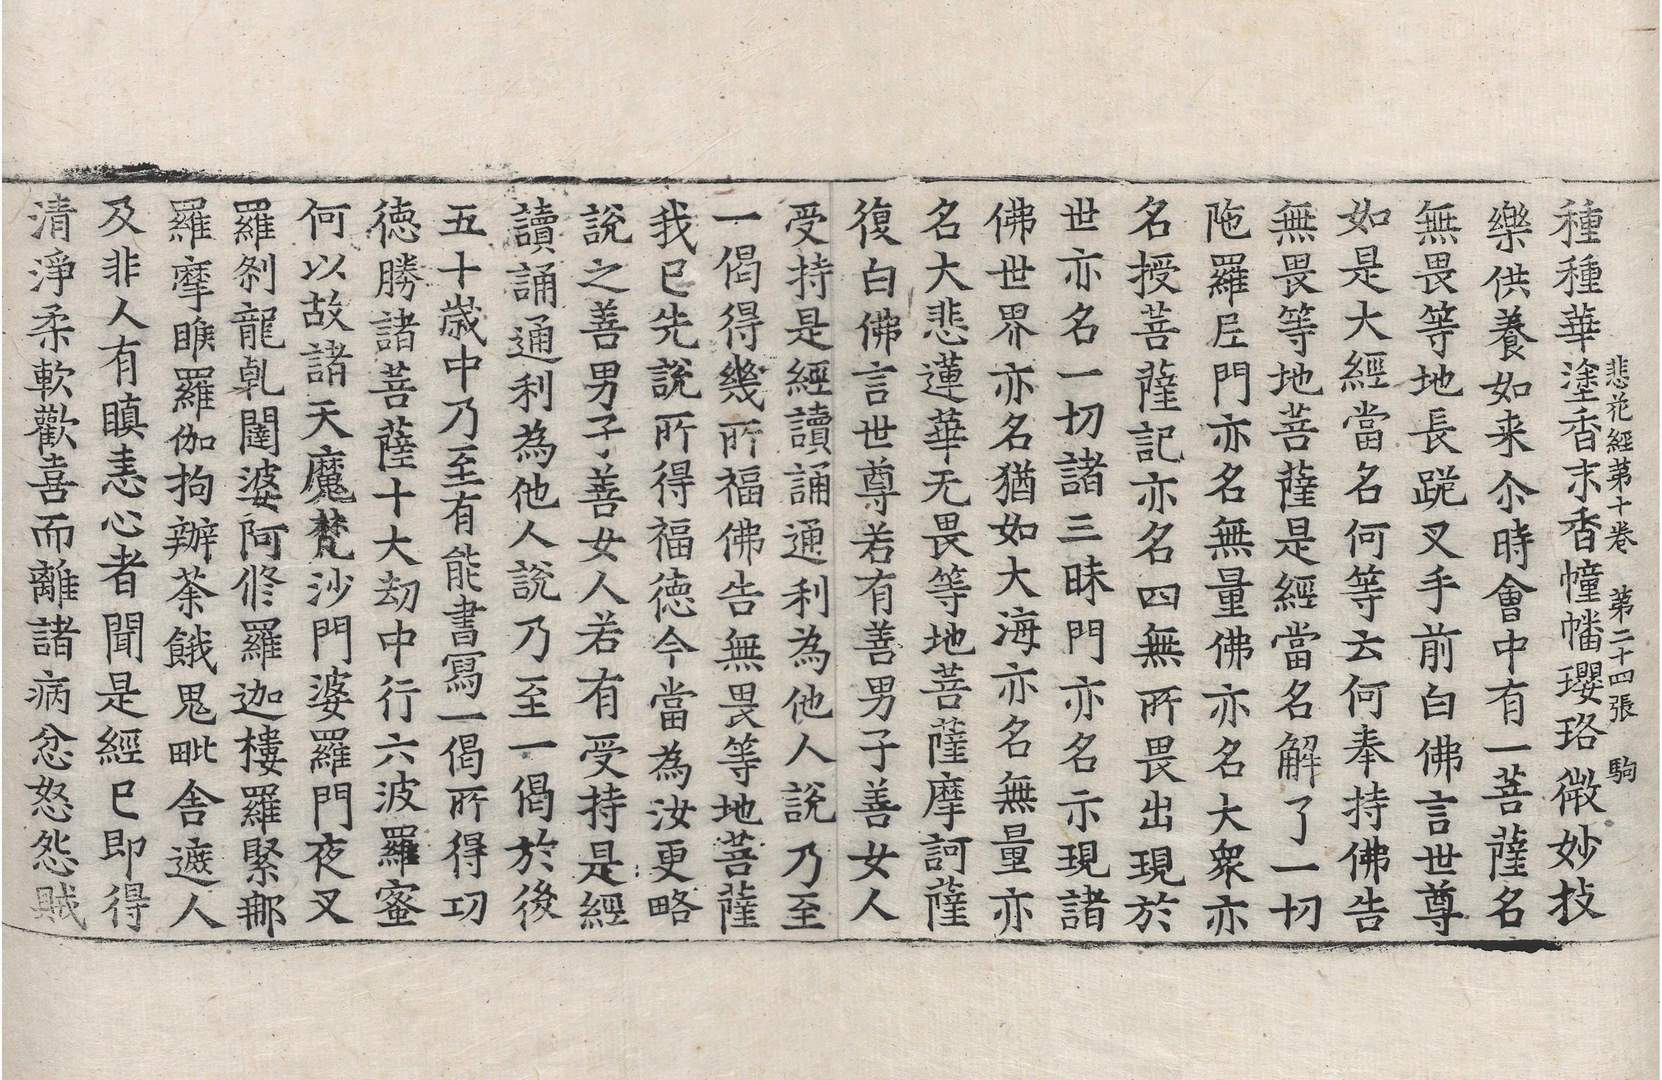 悲花經第十卷 第二十四張 駒
種種華塗香末香幢幡瓔珞微妙技
樂供養如来尒時會中有一菩薩名
無畏等地長跪叉手前白佛言世尊
如是大經當名何等云何奉持佛告
無畏等地菩薩是經當名解了一切
陁羅尼門亦名無量佛亦名大衆亦
名授菩薩記亦名四無所畏出現於
世亦名一切諸三昧門亦名示現諸
佛世界亦名猶如大海亦名無量亦
名大悲蓮華无畏等地菩薩摩訶薩
復白佛言世尊若有善男子善女人
受持是經讀誦通利為他人說乃至
一偈得幾所福佛告無畏等地菩薩
我已先說所得福徳今當為汝更略
說之善男子善女人若有受持是經
讀誦通利為他人說乃至一偈於後
五十歳中乃至有能書寫一偈所得功
徳勝諸菩薩十大劫中行六波羅蜜
何以故諸天魔梵沙門婆羅門夜叉
羅刹龍乹闥婆阿修羅迦樓羅緊那
羅摩睺羅伽拘辦荼餓鬼毗舍遮人
及非人有瞋恚心者聞是經已即得
清淨柔軟歡喜而離諸病忿怒怨賊